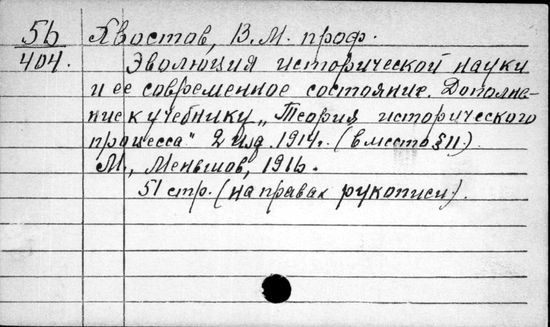 5b Хвостов, В.М. проф.
404. Эволюция исторической науки
и ее современное состояние. Дополне-
ние к учебнику „Теория исторического
процесса" 2 изд. 1914г. (вместо § 11.)
М., Меньшов, 1916.
51 стр. (на правах рукописи).